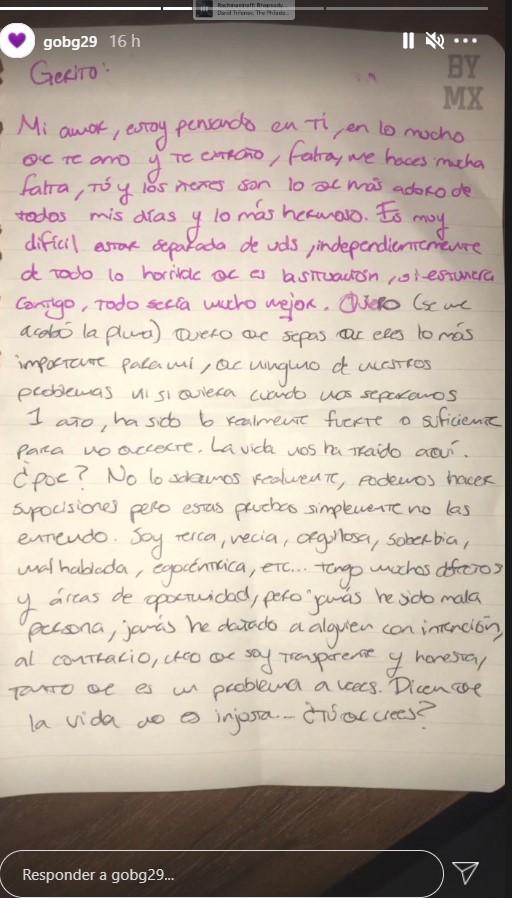 Rachmaninoff: Rhapsody...
gobg29 16 h
BY
MX
Gerito:
Mi amor, estoy pensando en Ti, en lo mucho
que te amo y te extraño, falta, me haces mucha
falta, tú y los nenes son lo que más adoro de
todos mis días y lo más hermoso. Es muy
difícil estar separada de uds, independientemente
de todo lo horrible que es la situación, si estuviera
contigo, todo sería mucho mejor. Quiero (se me
acabó la pluma) Quiero que sepas que eres lo más
importante para mi, que ninguno de nuestros
problemas ni si quiera cuando nos separamos
1 año, ha sido lo realmente fuerte o suficiente
para no quererte. La vida nos ha traído aquí.
¿por? No lo sabemos realmente, podemos hacer
suposiciones pero estas pruebas simplemente no las
entiendo. Soy terca, necia, orgullosa, soberbia,
mal hablada, egocéntrica, etc... tengo muchos defectos
y áreas de oportunidad, pero jamás he sido mala
persona, jamás he dañado a alguien con intención,
al contrario, creo que soy transparente y honesta,
tanto que es un problema a veces. Dicen que
la vida no es injusta... ¿Tú que crees?
Responder a gobg29...